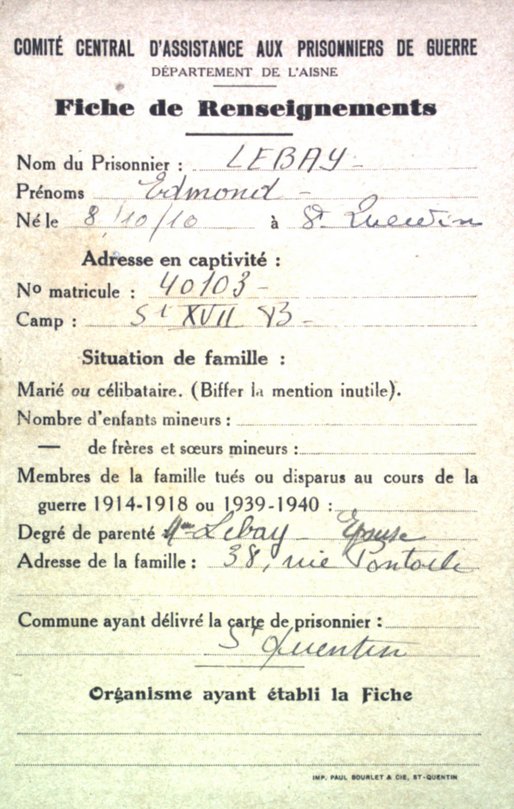 COMITÉ CENTRAL D'ASSISTANCE AUX PRISONNIERS DE GUERRE
DÉPARTEMENT DE L'AISNE
Fiche de Renseignements
Nom du Prisonnier : LEBAY -
Prénoms Edmond -
Né le 8/10/10 à St Quentin
Adresse en captivité :
No matricule : 40103 -
Camp : St XVII B -
Situation de famille :
Marié ou célibataire. (Biffer la mention inutile).
Nombre d'enfants mineurs :
— de frères et sœurs mineurs :
Membres de la famille tués ou disparus au cours de la
guerre 1914-1918 ou 1939-1940 :
Degré de parenté Mme Lebay - Epouse
Adresse de la famille : 38, rue Pontoile
Commune ayant délivré la carte de prisonnier :
St Quentin
Organisme ayant établi la Fiche
IMP. PAUL BOURLET & CIE, ST-QUENTIN